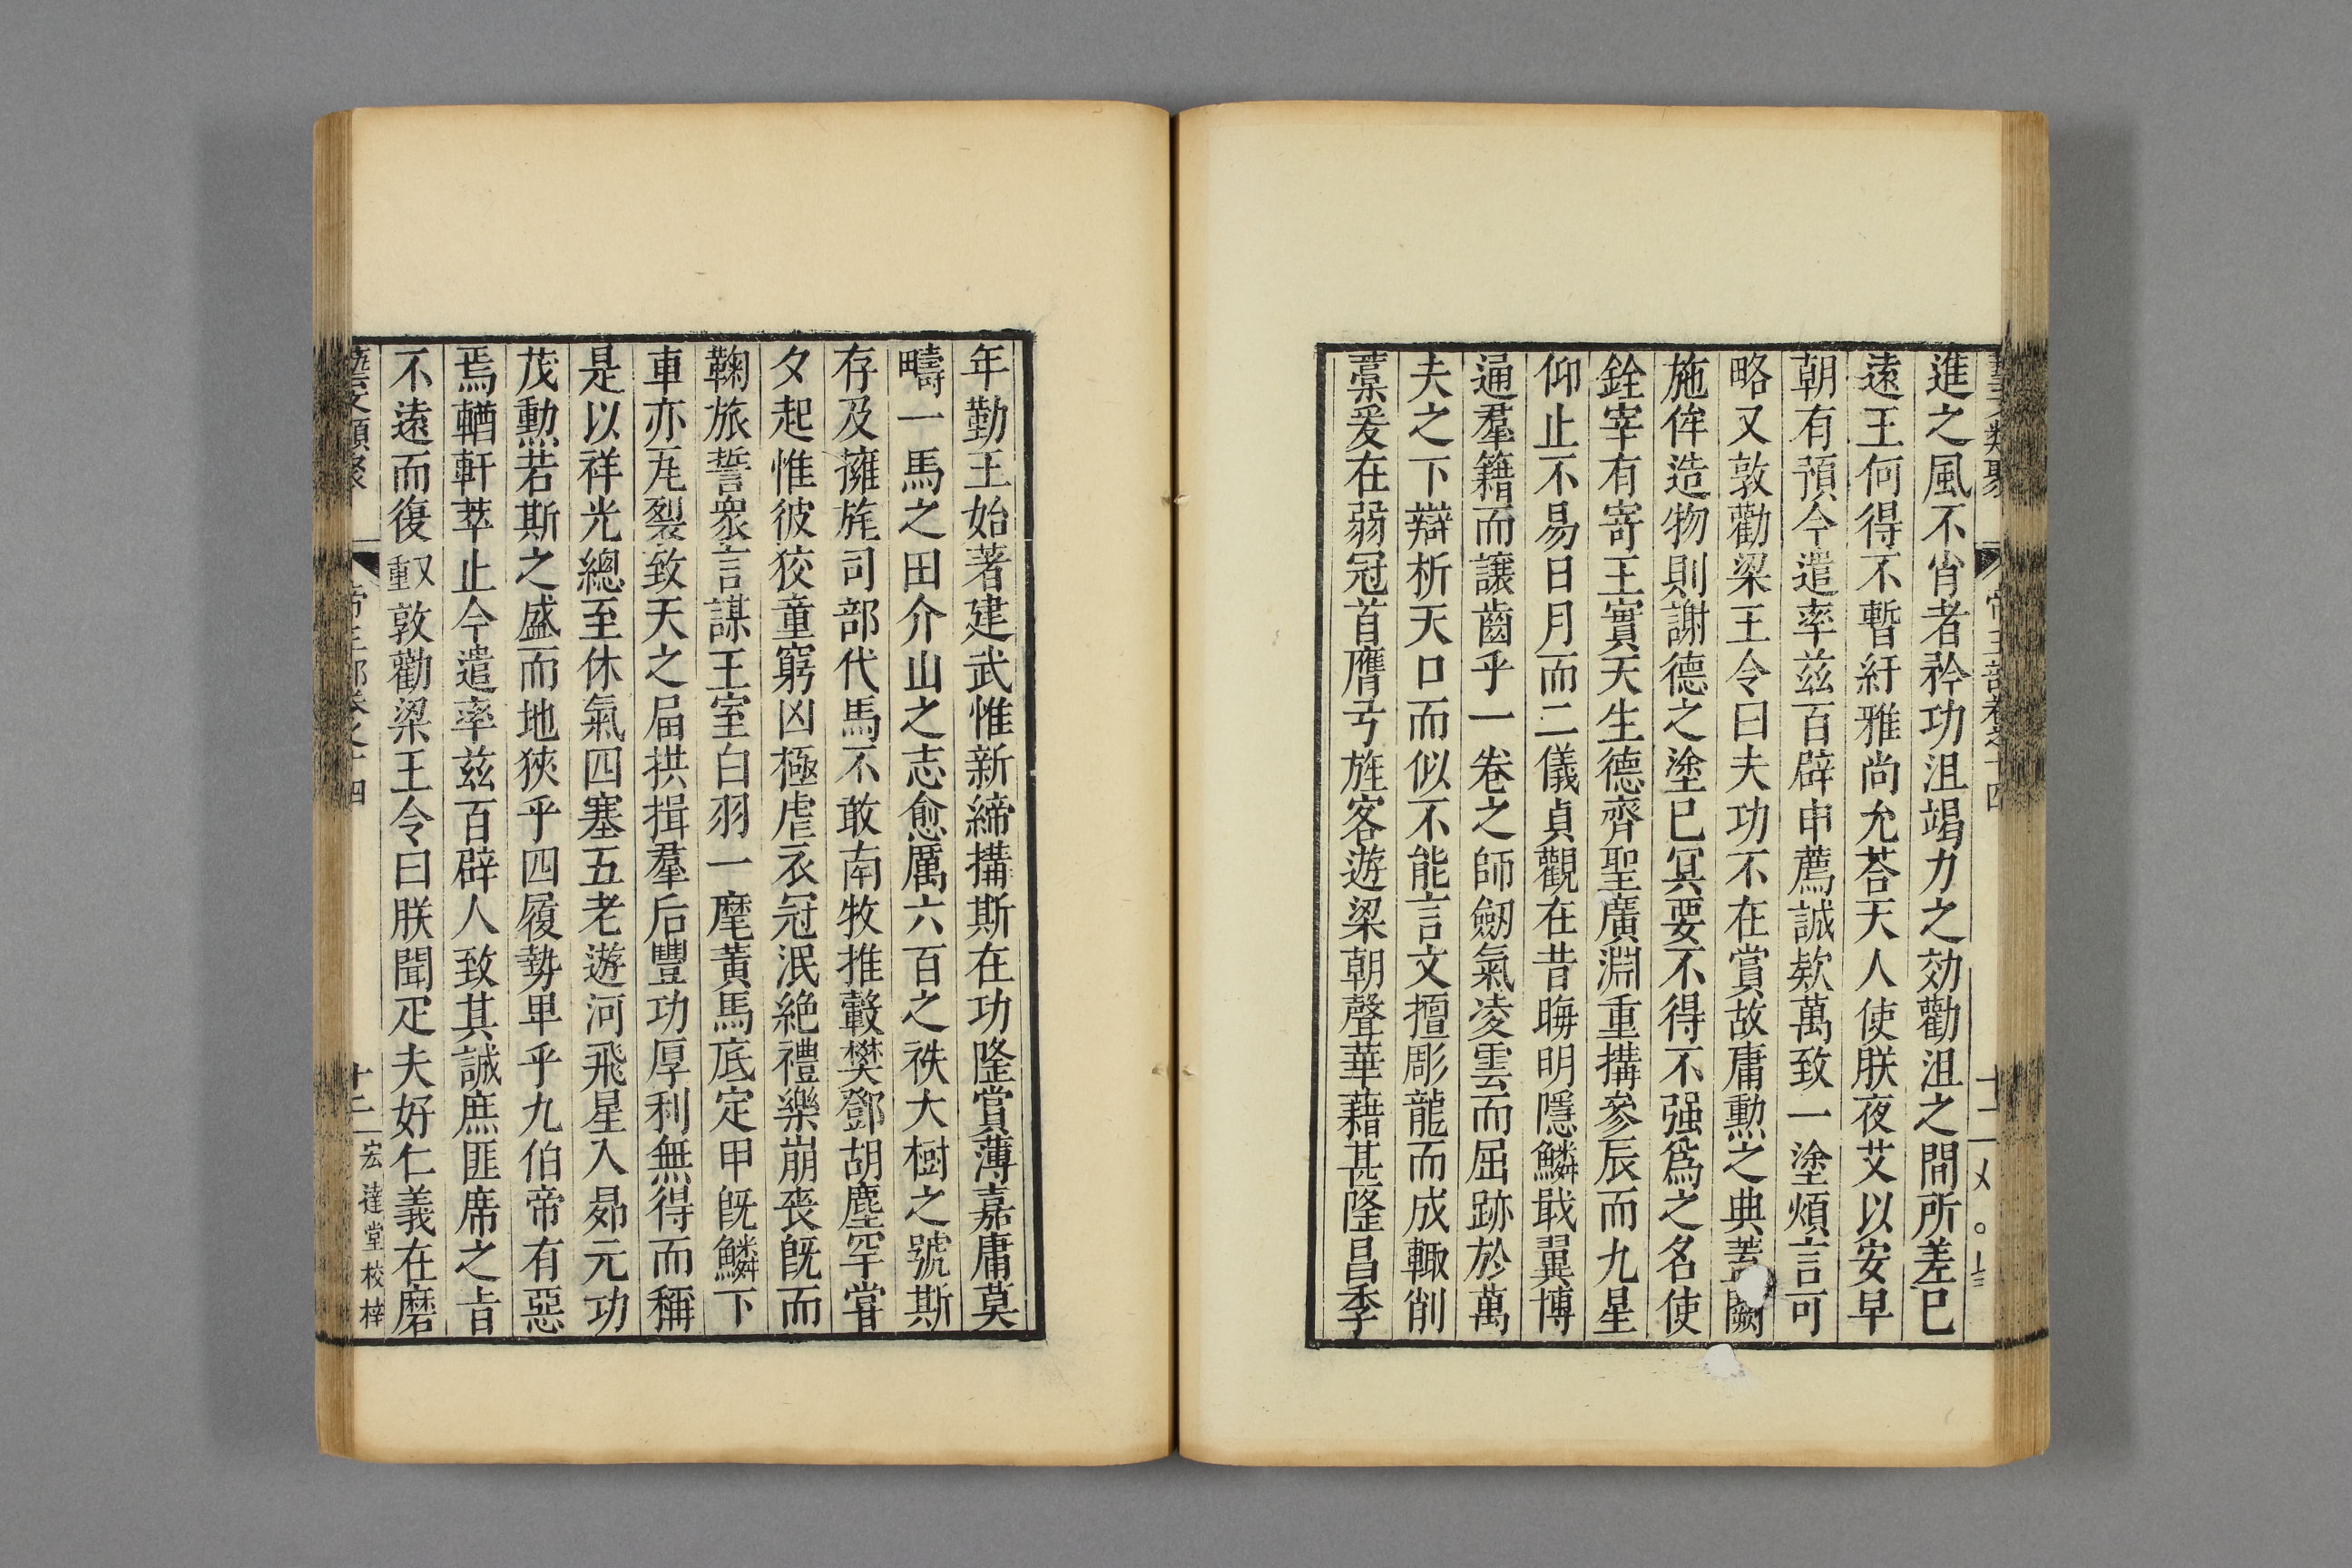 進之風不肖者矜功沮竭力之効勸沮之間所差已
遠王何得不暫紆雅尚允荅天人使朕夜艾以安早
朝有預今遣率兹百辟申薦誠欵萬致一塗煩言可
略又敦勸梁王令曰夫功不在賞故庸勲之典蓋闕
施侔造物則謝德之塗已冥要不得不强爲之名使
銓宰有寄王實天生德齊聖廣淵重搆參辰而九星
仰止不易日月而二儀貞觀在昔晦明隱鱗戢翼博
通羣籍而讓齒乎一卷之師劒氣凌雲而屈跡於萬
夫之下辯析天口而似不能言文擅彫龍而成輙削
藁爰在弱冠首膺弓旌客遊梁朝聲華藉甚隆昌季
年勤王始著建武惟新締搆斯在功隆賞薄嘉庸莫
疇一馬之田介山之志愈厲六百之秩大樹之號斯
存及擁旄司部代馬不敢南牧推轂樊鄧胡塵罕嘗
夕起惟彼狡童窮凶極虐衣冠泯絶禮樂崩喪旣而
鞠旅誓衆言謀王室白羽一麾黃馬底定甲旣鱗下
車亦瓦裂致天之屆拱揖羣后豐功厚利無得而稱
是以祥光總至休氣四塞五老遊河飛星入昴元功
茂勲若斯之盛而地狹乎四履勢卑乎九伯帝有恧
焉輶軒萃止今遣率兹百辟人致其誠庶匪席之旨
不遠而復重又敦勸梁王令曰朕聞疋夫好仁義在磨
藝文類聚 帝王部卷之十四 十二 宏達堂校梓